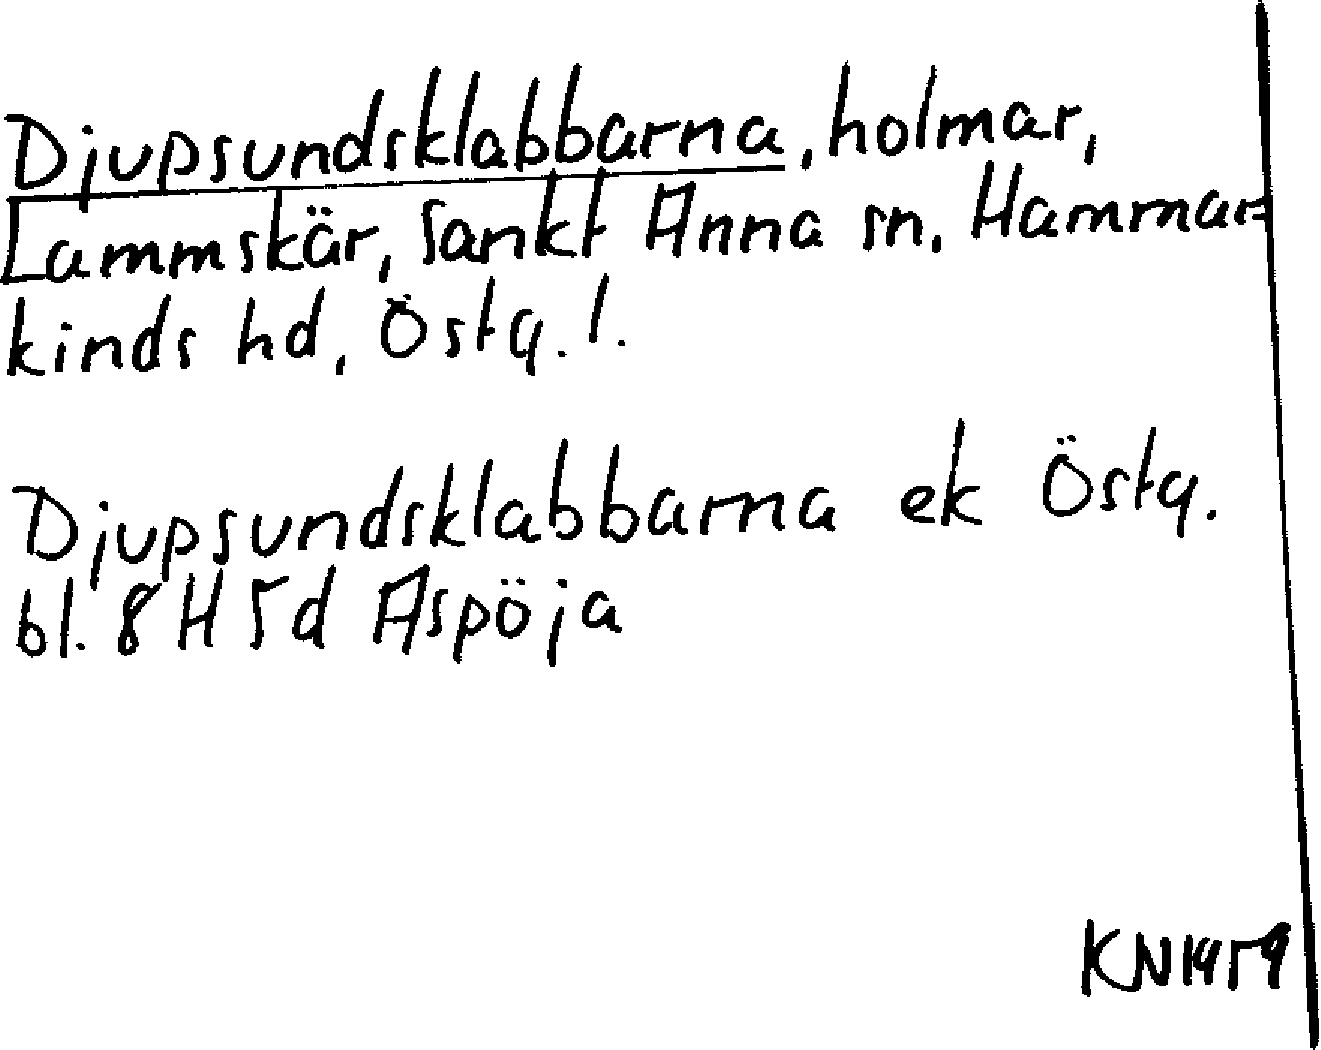 Djupsundsklabbarna, holmar,
Lammskär, Sankt Anna sn, Hammar-
kinds hd, Östg. l.
Djupsundsklabbarna ek Östg.
bl. 8 H 5d Aspöja